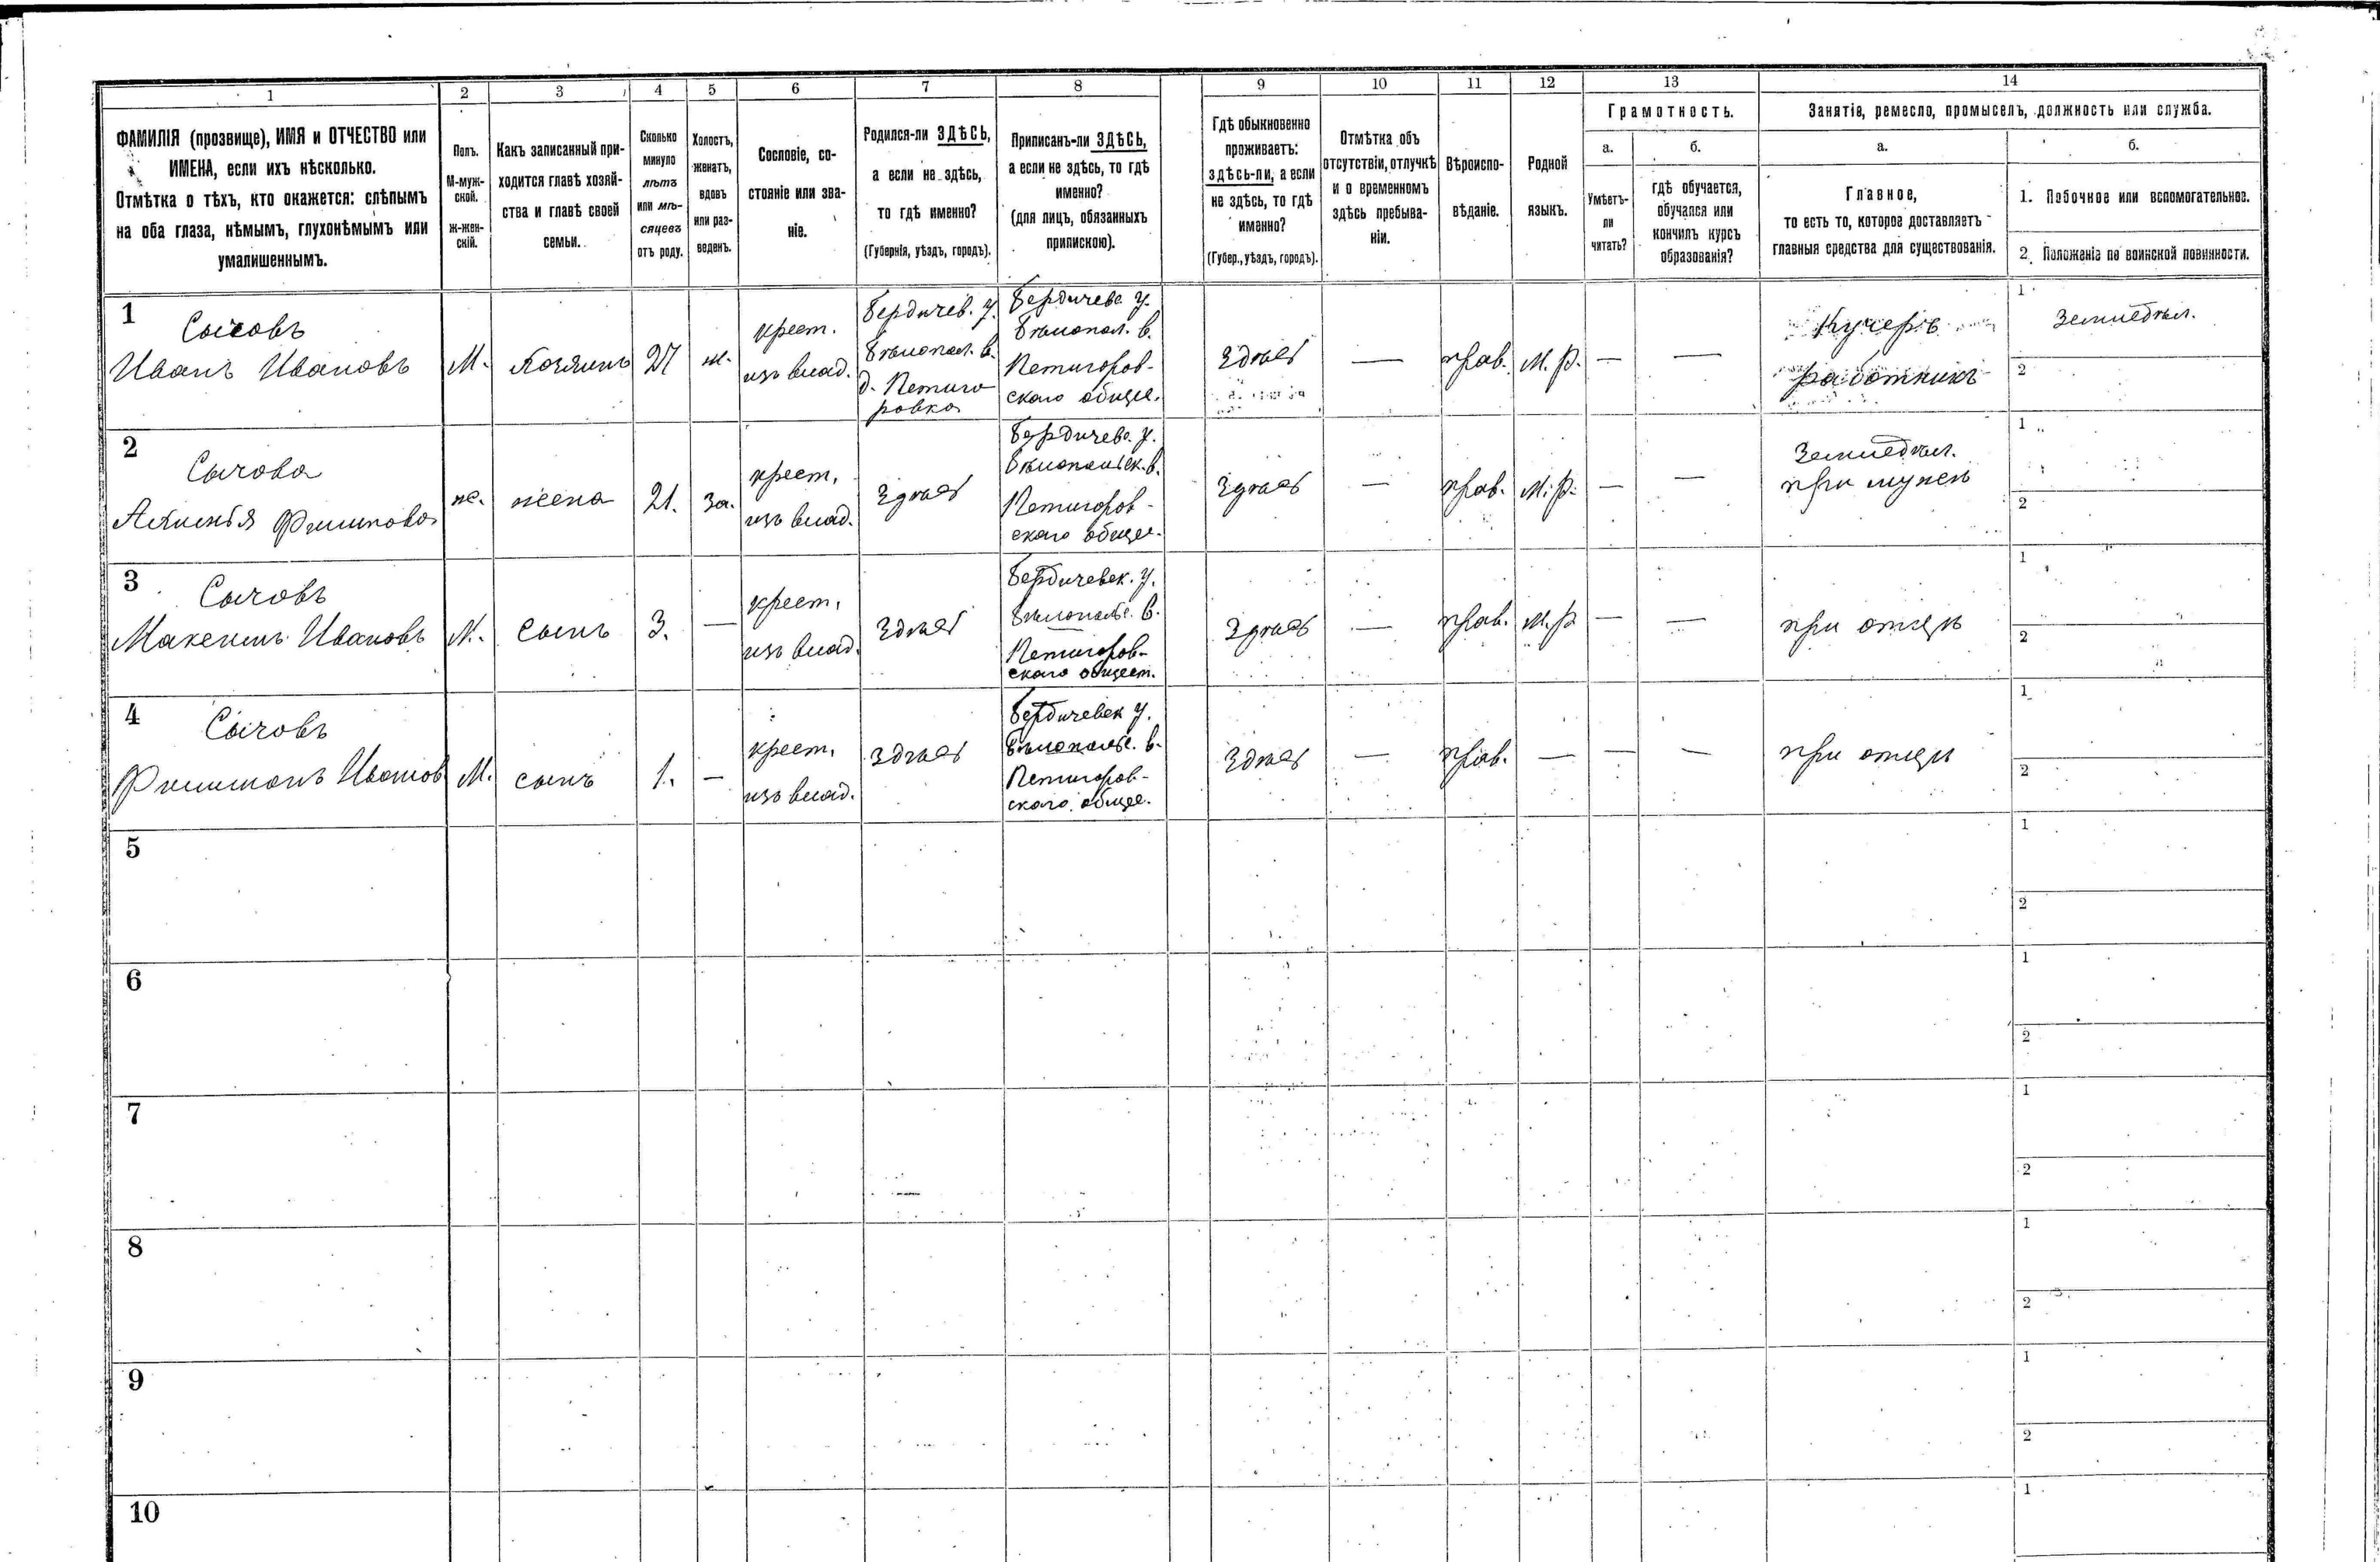 1 2 3 4 5 6 7 8 9 10 11 12 13 14
ФАМИЛІЯ (прозвище), ИМЯ и ОТЧЕСТВО или
ИМЕНА, если ихъ нѣсколько.
Отмѣтка о тѣхъ, кто окажется: слѣпымъ
на оба глаза, нѣмымъ, глухонѣмымъ или
умалишеннымъ.
Полъ.
М-муж-
ской.
Ж-жен-
скій.
Какъ записанный при-
ходится главѣ хозяй-
ства и главѣ своей
семьи.
Сколько
минуло
лѣтъ
или мѣ-
сяцевъ
отъ роду.
Холостъ,
женатъ,
вдовъ
или раз-
веденъ.
Сословіе, со-
стояніе или зва-
ніе.
Родился-ли ЗДѢСЬ,
а если не здѣсь,
то гдѣ именно?
(Губернія, уѣздъ, городъ).
Приписанъ-ли ЗДѢСЬ,
а если не здѣсь, то гдѣ
именно?
(для лицъ, обязанныхъ
припискою).
Гдѣ обыкновенно
проживаетъ:
здѣсь-ли, а если
не здѣсь, то гдѣ
именно?
(Губер., уѣздъ, городъ).
Отмѣтка объ
отсутствіи, отлучкѣ
и о временномъ
здѣсь пребыва-
ніи.
Вѣроиспо-
вѣданіе.
Родной
языкъ.
Грамотность.
а.
Умѣетъ-
ли
читать?
б.
гдѣ обучается,
обучался или
кончилъ курсъ
образованія?
Занятіе, ремесло, промыселъ, должность или служба.
а.
Главное,
то есть то, которое доставляетъ
главныя средства для существованія.
б.
1. Побочное или вспомогательное.
2. Положеніе по воинской повинности.
1
Сычовъ
Иванъ Ивановъ
М.
Хозяинъ
27
ж.
крест.
изъ влад.
Бердичев. у.
Бѣлопол. в.
д. Петиго
ровка
Бердичевс. у.
Бѣлопол. в.
Петигоров-
скаго общес.
Здѣсь
—
прав.
М. р.
—
—
Кучеръ
работникъ
1
Земледѣл.
2
2
Сычова
Филипова
ж.
жена
21.
за.
крест.
изъ влад.
Здѣсь
Бердичевс. у.
Бѣлопольск. в.
Петигоров-
скаго общес.
Здѣсь
—
прав.
М. р.
—
—
Земледѣл.
при мужѣ
1
2
3
Сычовъ
Максимъ Ивановъ
М.
сынъ
3.
—
крест.
изъ влад.
Здѣсь
Бердичевск. у.
Бѣлопольс. в.
Петигоров-
скаго общест.
Здѣсь
—
прав.
М. р.
—
—
при отцѣ
1
2
4
Сычовъ
Филимонъ Иванов
М.
сынъ
1.
—
крест.
изъ влад.
Здѣсь
Бердичевск у.
Бѣлопольс. в.
Петигоров-
скаго общес.
Здѣсь
—
прав.
—
—
—
при отцѣ
1
2
5
1
2
6
1
2
7
1
2
8
1
2
9
1
2
10
1